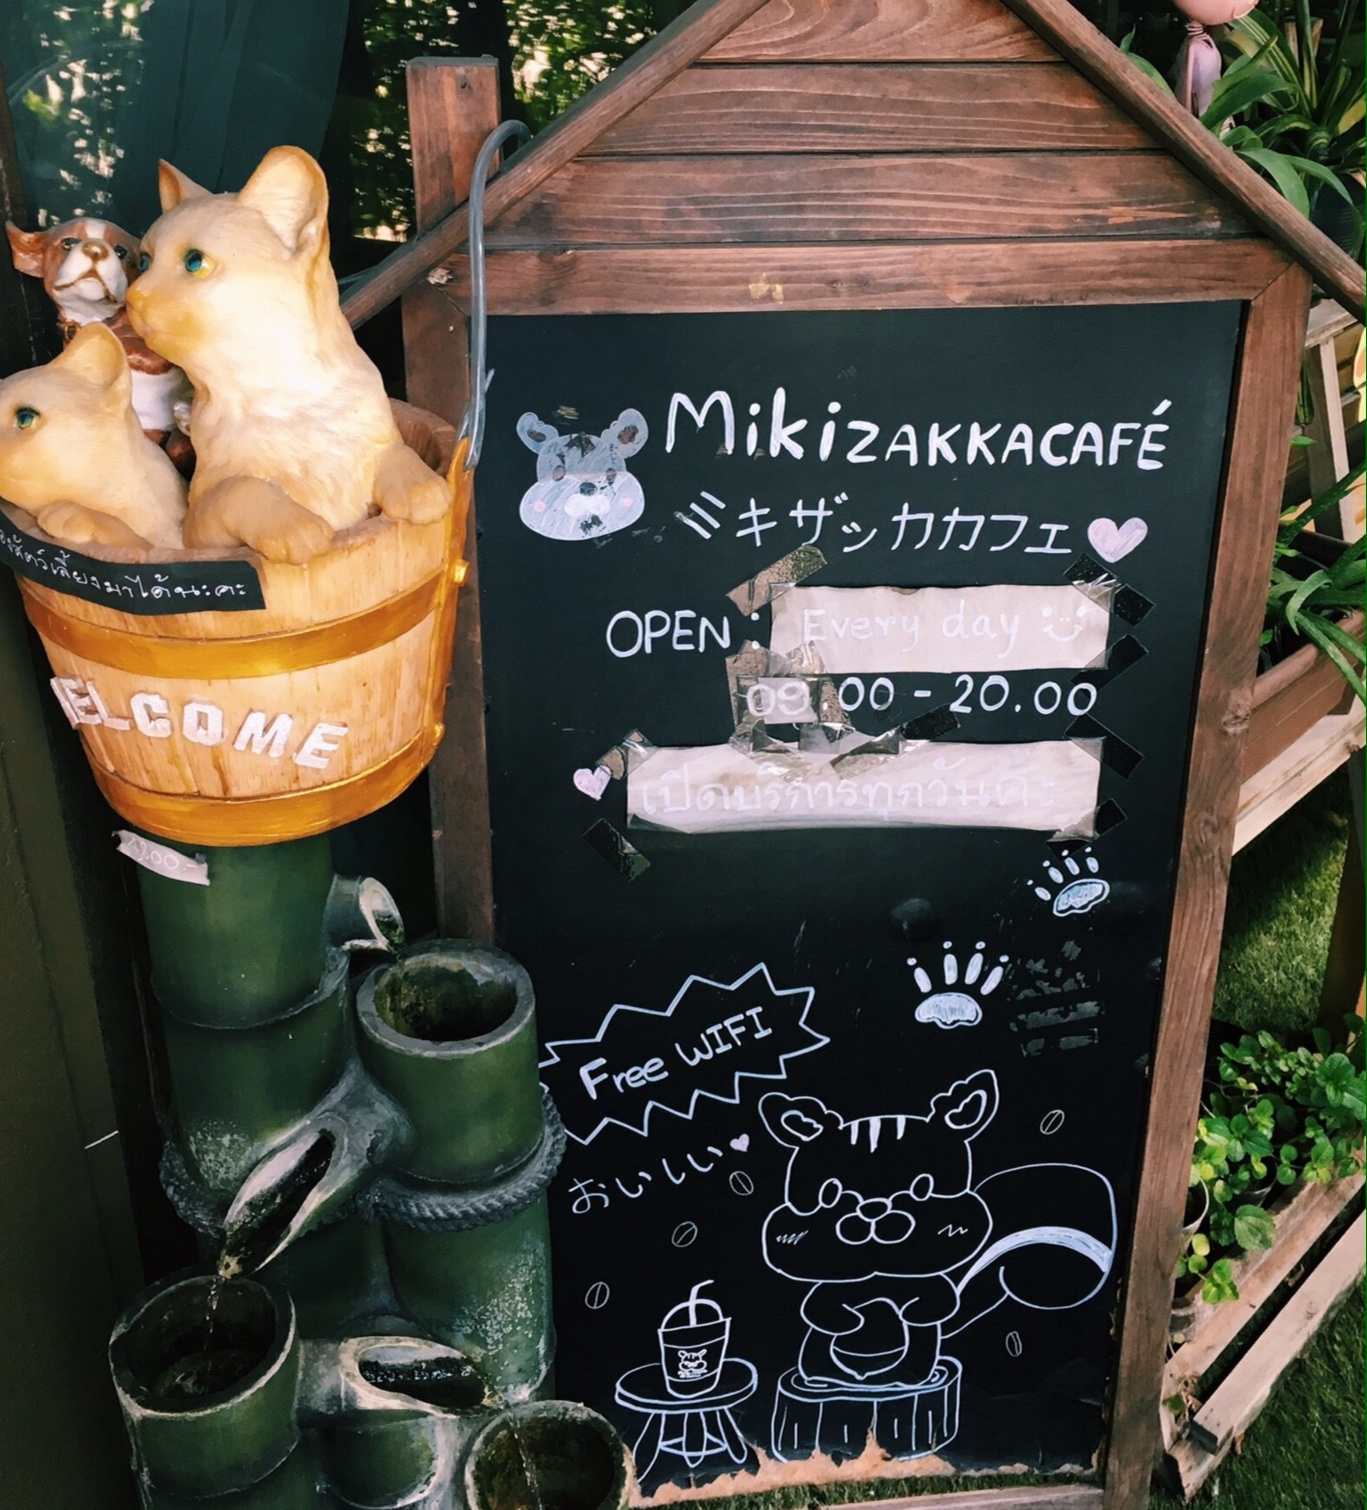 MikizAKKACAFÉ
ミキザッカカフェ
OPEN : Every day
09.00 - 20.00
เปิดบริการทุกวันค่ะ
Free WIFI
おいしい
สัตว์เลี้ยงมาได้นะคะ
WELCOME